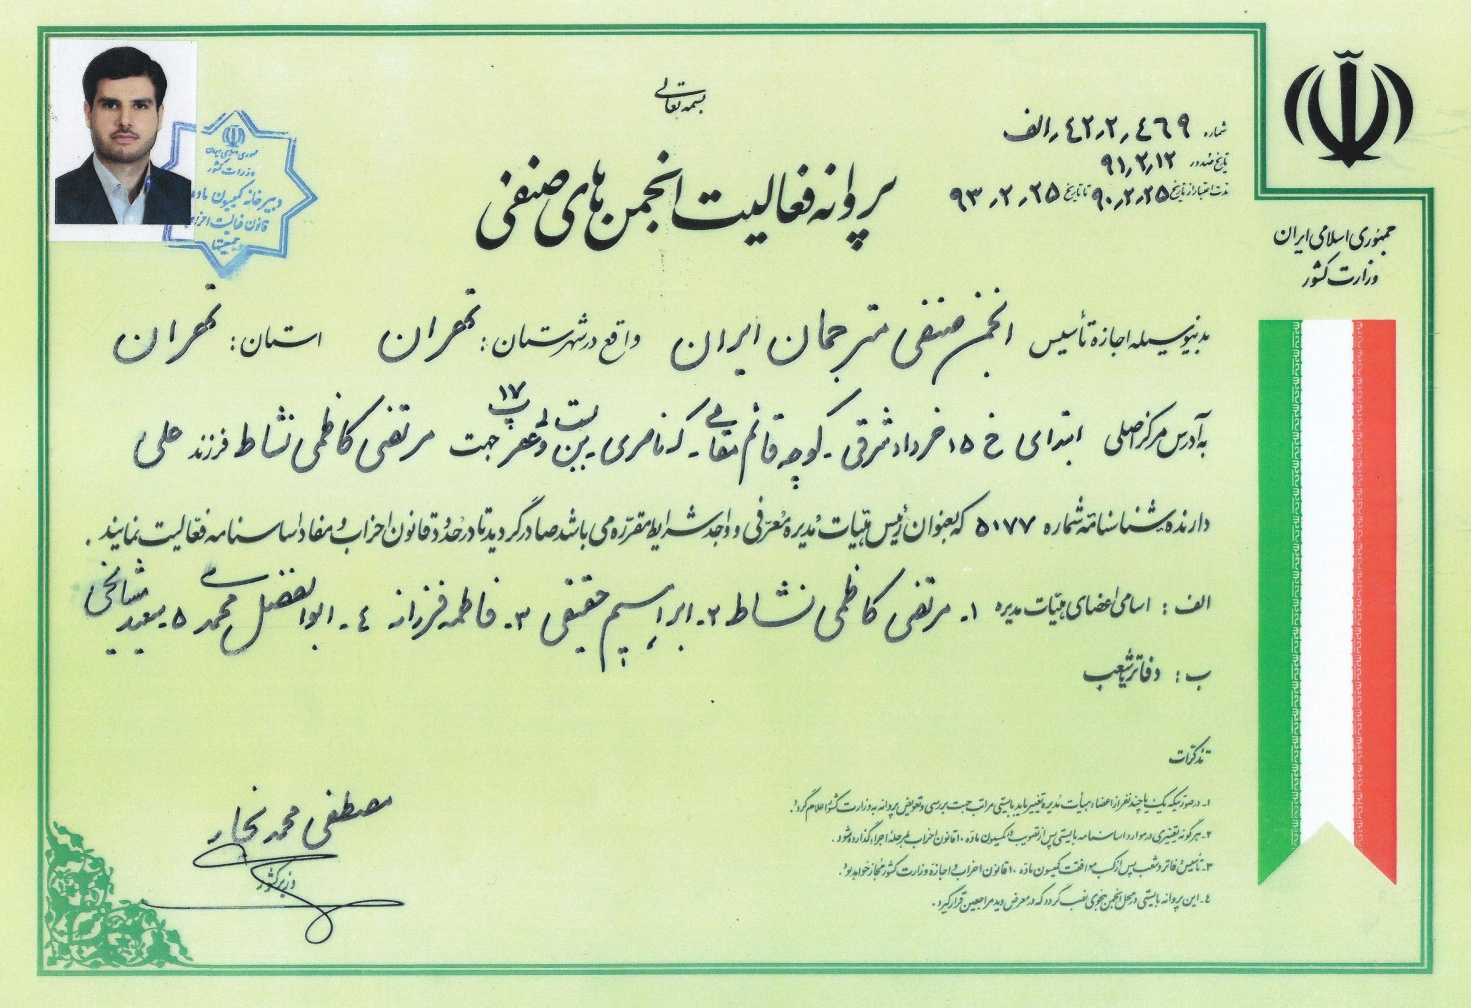 بسمه تعالی
شماره ۴۲٫۲٫۴۶۹٫الف
تاریخ صدور ۹۱٫۲٫۱۲
مدت اعتبار از تاریخ ۹۰٫۲٫۲۵ تا تاریخ ۹۳٫۲٫۲۵
جمهوری اسلامی ایران
وزارت کشور
جمهوری اسلامی ایران
وزارت کشور
دبیرخانه کمیسیون ماده
قانون فعالیت احزاب
و جمعیتها
پروانه فعالیت انجمن های صنفی
بدینوسیله اجازه تأسیس انجمن صنفی مترجمان ایران واقع در شهرستان: تهران استان: تهران
به آدرس مرکز اصلی ابتدای خ ۱۵ خرداد شرقی ـ کوچه قائم مقامی ـ ک ناصری ـ بن ولیعصر پ ۱۷ جهت مرتضی کاظمی نشاط فرزند علی
دارنده شناسنامه شماره ۵۱۷۷ که بعنوان رئیس هیات مدیره معرفی و واجد شرایط مقرره می باشد صادر گردید تا در حدود قانون احزاب و مفاد اساسنامه فعالیت نمایند.
الف: اسامی اعضای هیات مدیره ۱ـ مرتضی کاظمی نشاط ۲ـ ابراهیم حقیقی ۳ـ فاطمه فرزانه ۴ـ ابوالفضل محمدی ۵ـ سعید
ب: دفاتر یا شعب
تذکرات
۱ـ در صورتیکه یک یا چند نفر از اعضاء هیأت مدیره تغییر یابد بایستی مراتب جهت بررسی و تعویض پروانه به وزارت کشور اعلام گردد.
۲ـ هرگونه تغییری در موارد اساسنامه بایستی پس از تصویب در کمیسیون ماده ۱۰ قانون احزاب بمرحله اجرا گذارده شود.
۳ـ تأسیس دفاتر و شعب پس از کسب موافقت کمیسیون ماده ۱۰ قانون احزاب و اجازه وزارت کشور مجاز خواهد بود.
۴ـ این پروانه بایستی در محل انجمن بنحوی نصب گردد که در معرض دید مراجعین قرار گیرد.
مصطفی محمد نجار
وزیر کشور